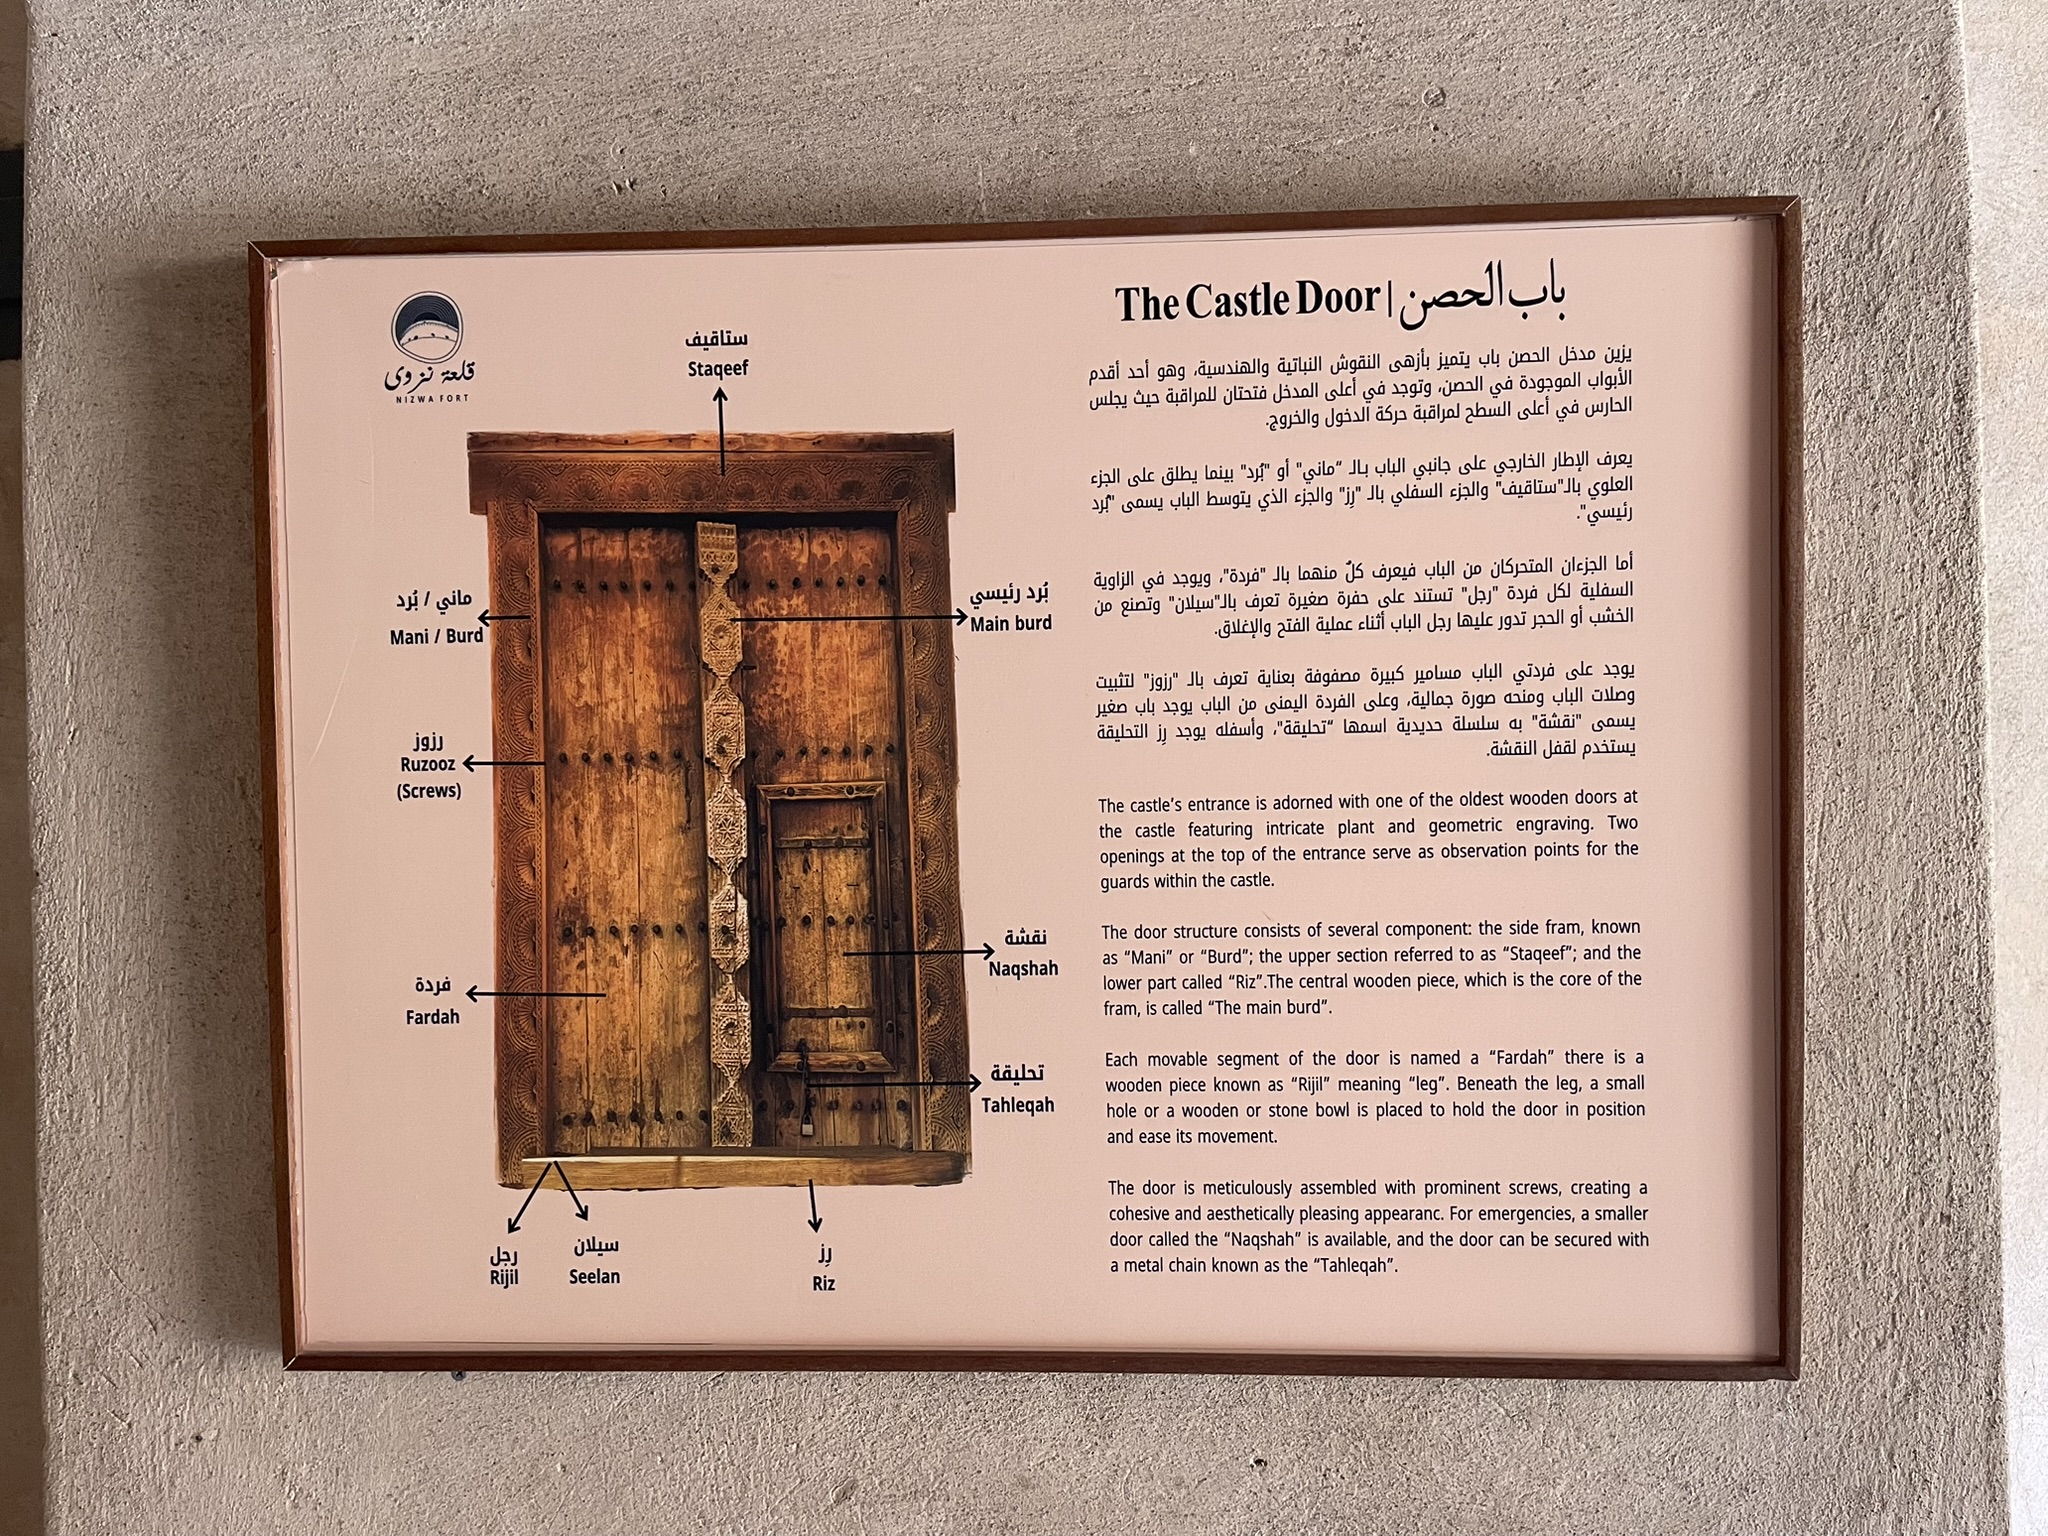 قلعة نزوى
NIZWA FORT
ستاقيف
Staqeef
ماني / بُرد
Mani / Burd
بُرد رئيسي
Main burd
رزوز
Ruzooz
(Screws)
نقشة
Naqshah
فردة
Fardah
تحليقة
Tahleqah
رجل
Rijil
سيلان
Seelan
رِز
Riz
The Castle Door | باب الحصن
يزين مدخل الحصن باب يتميز بأزهى النقوش النباتية والهندسية، وهو أحد أقدم
الأبواب الموجودة في الحصن، وتوجد في أعلى المدخل فتحتان للمراقبة حيث يجلس
الحارس في أعلى السطح لمراقبة حركة الدخول والخروج.
يعرف الإطار الخارجي على جانبي الباب بـالـ “ماني" أو "بُرد" بينما يطلق على الجزء
العلوي بالـ"ستاقيف" والجزء السفلي بالـ "رِز" والجزء الذي يتوسط الباب يسمى "بُرد
رئيسي".
أما الجزءان المتحركان من الباب فيعرف كلٌ منهما بالـ "فردة"، ويوجد في الزاوية
السفلية لكل فردة "رجل" تستند على حفرة صغيرة تعرف بالـ"سيلان" وتصنع من
الخشب أو الحجر تدور عليها رجل الباب أثناء عملية الفتح والإغلاق.
يوجد على فردتي الباب مسامير كبيرة مصفوفة بعناية تعرف بالـ "رزوز" لتثبيت
وصلات الباب ومنحه صورة جمالية، وعلى الفردة اليمنى من الباب يوجد باب صغير
يسمى "نقشة" به سلسلة حديدية اسمها “تحليقة"، وأسفله يوجد رِز التحليقة
يستخدم لقفل النقشة.
The castle's entrance is adorned with one of the oldest wooden doors at
the castle featuring intricate plant and geometric engraving. Two
openings at the top of the entrance serve as observation points for the
guards within the castle.
The door structure consists of several component: the side fram, known
as “Mani” or “Burd”; the upper section referred to as “Staqeef”; and the
lower part called “Riz”.The central wooden piece, which is the core of the
fram, is called “The main burd”.
Each movable segment of the door is named a “Fardah” there is a
wooden piece known as “Rijil” meaning “leg”. Beneath the leg, a small
hole or a wooden or stone bowl is placed to hold the door in position
and ease its movement.
The door is meticulously assembled with prominent screws, creating a
cohesive and aesthetically pleasing appearanc. For emergencies, a smaller
door called the “Naqshah” is available, and the door can be secured with
a metal chain known as the “Tahleqah”.